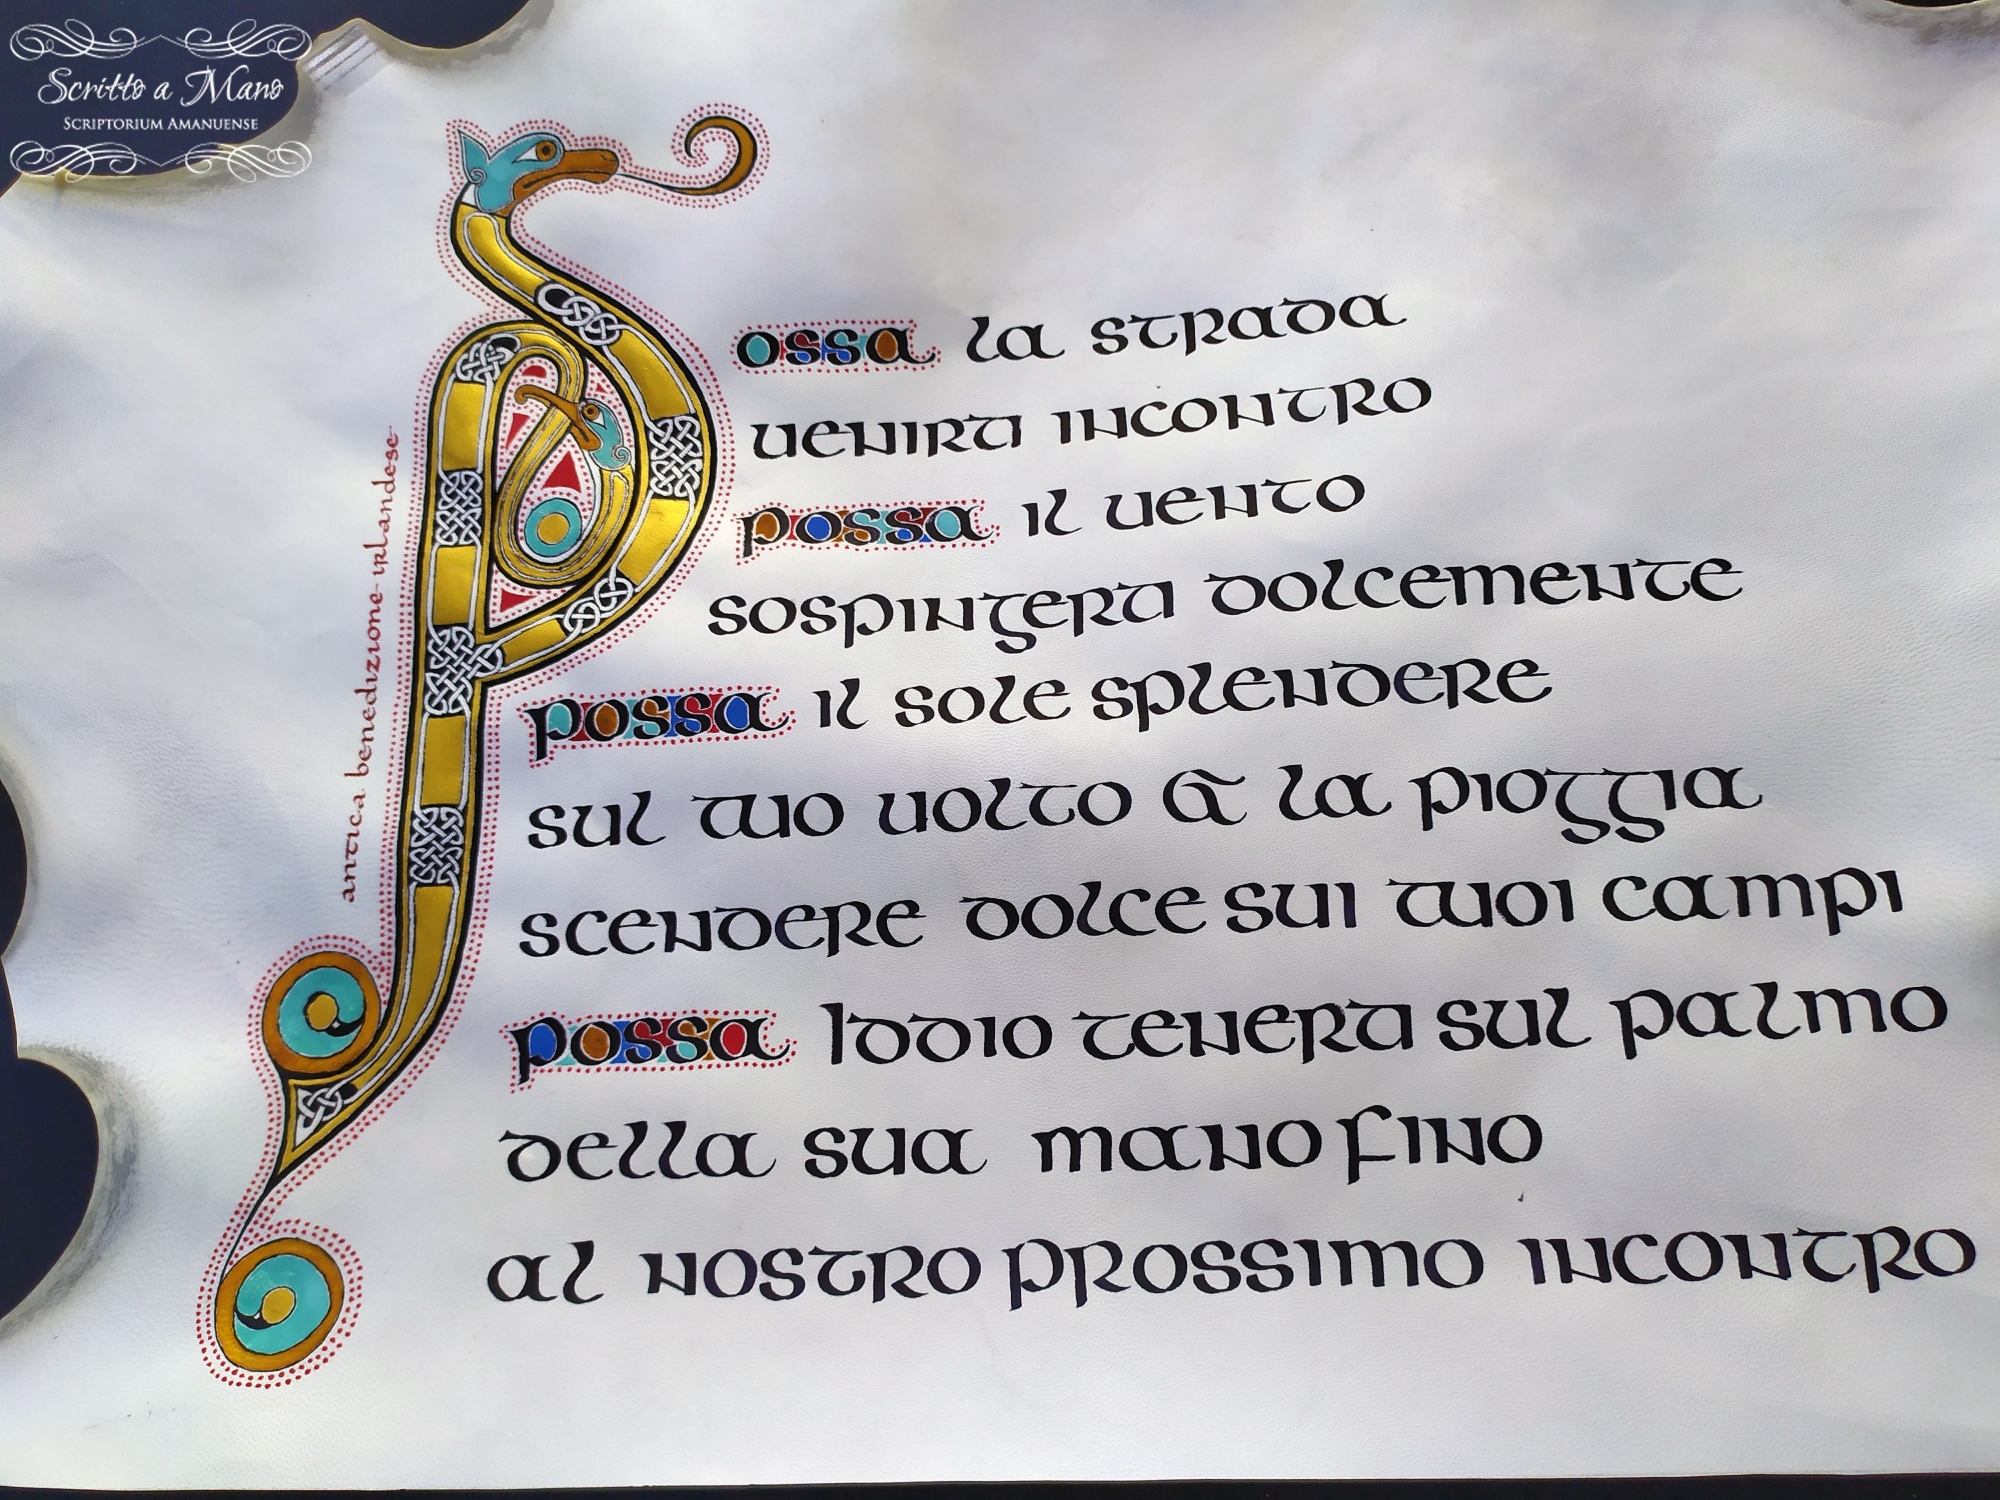 Scritto a Mano
SCRIPTORIUM AMANUENSE
Possa la strada
venirti incontro
possa il vento
sospingerti dolcemente
possa il sole splendere
sul tuo volto & la pioggia
scendere dolce sui tuoi campi
possa Iddio tenerti sul palmo
della sua mano fino
al nostro prossimo incontro
antica benedizione irlandese